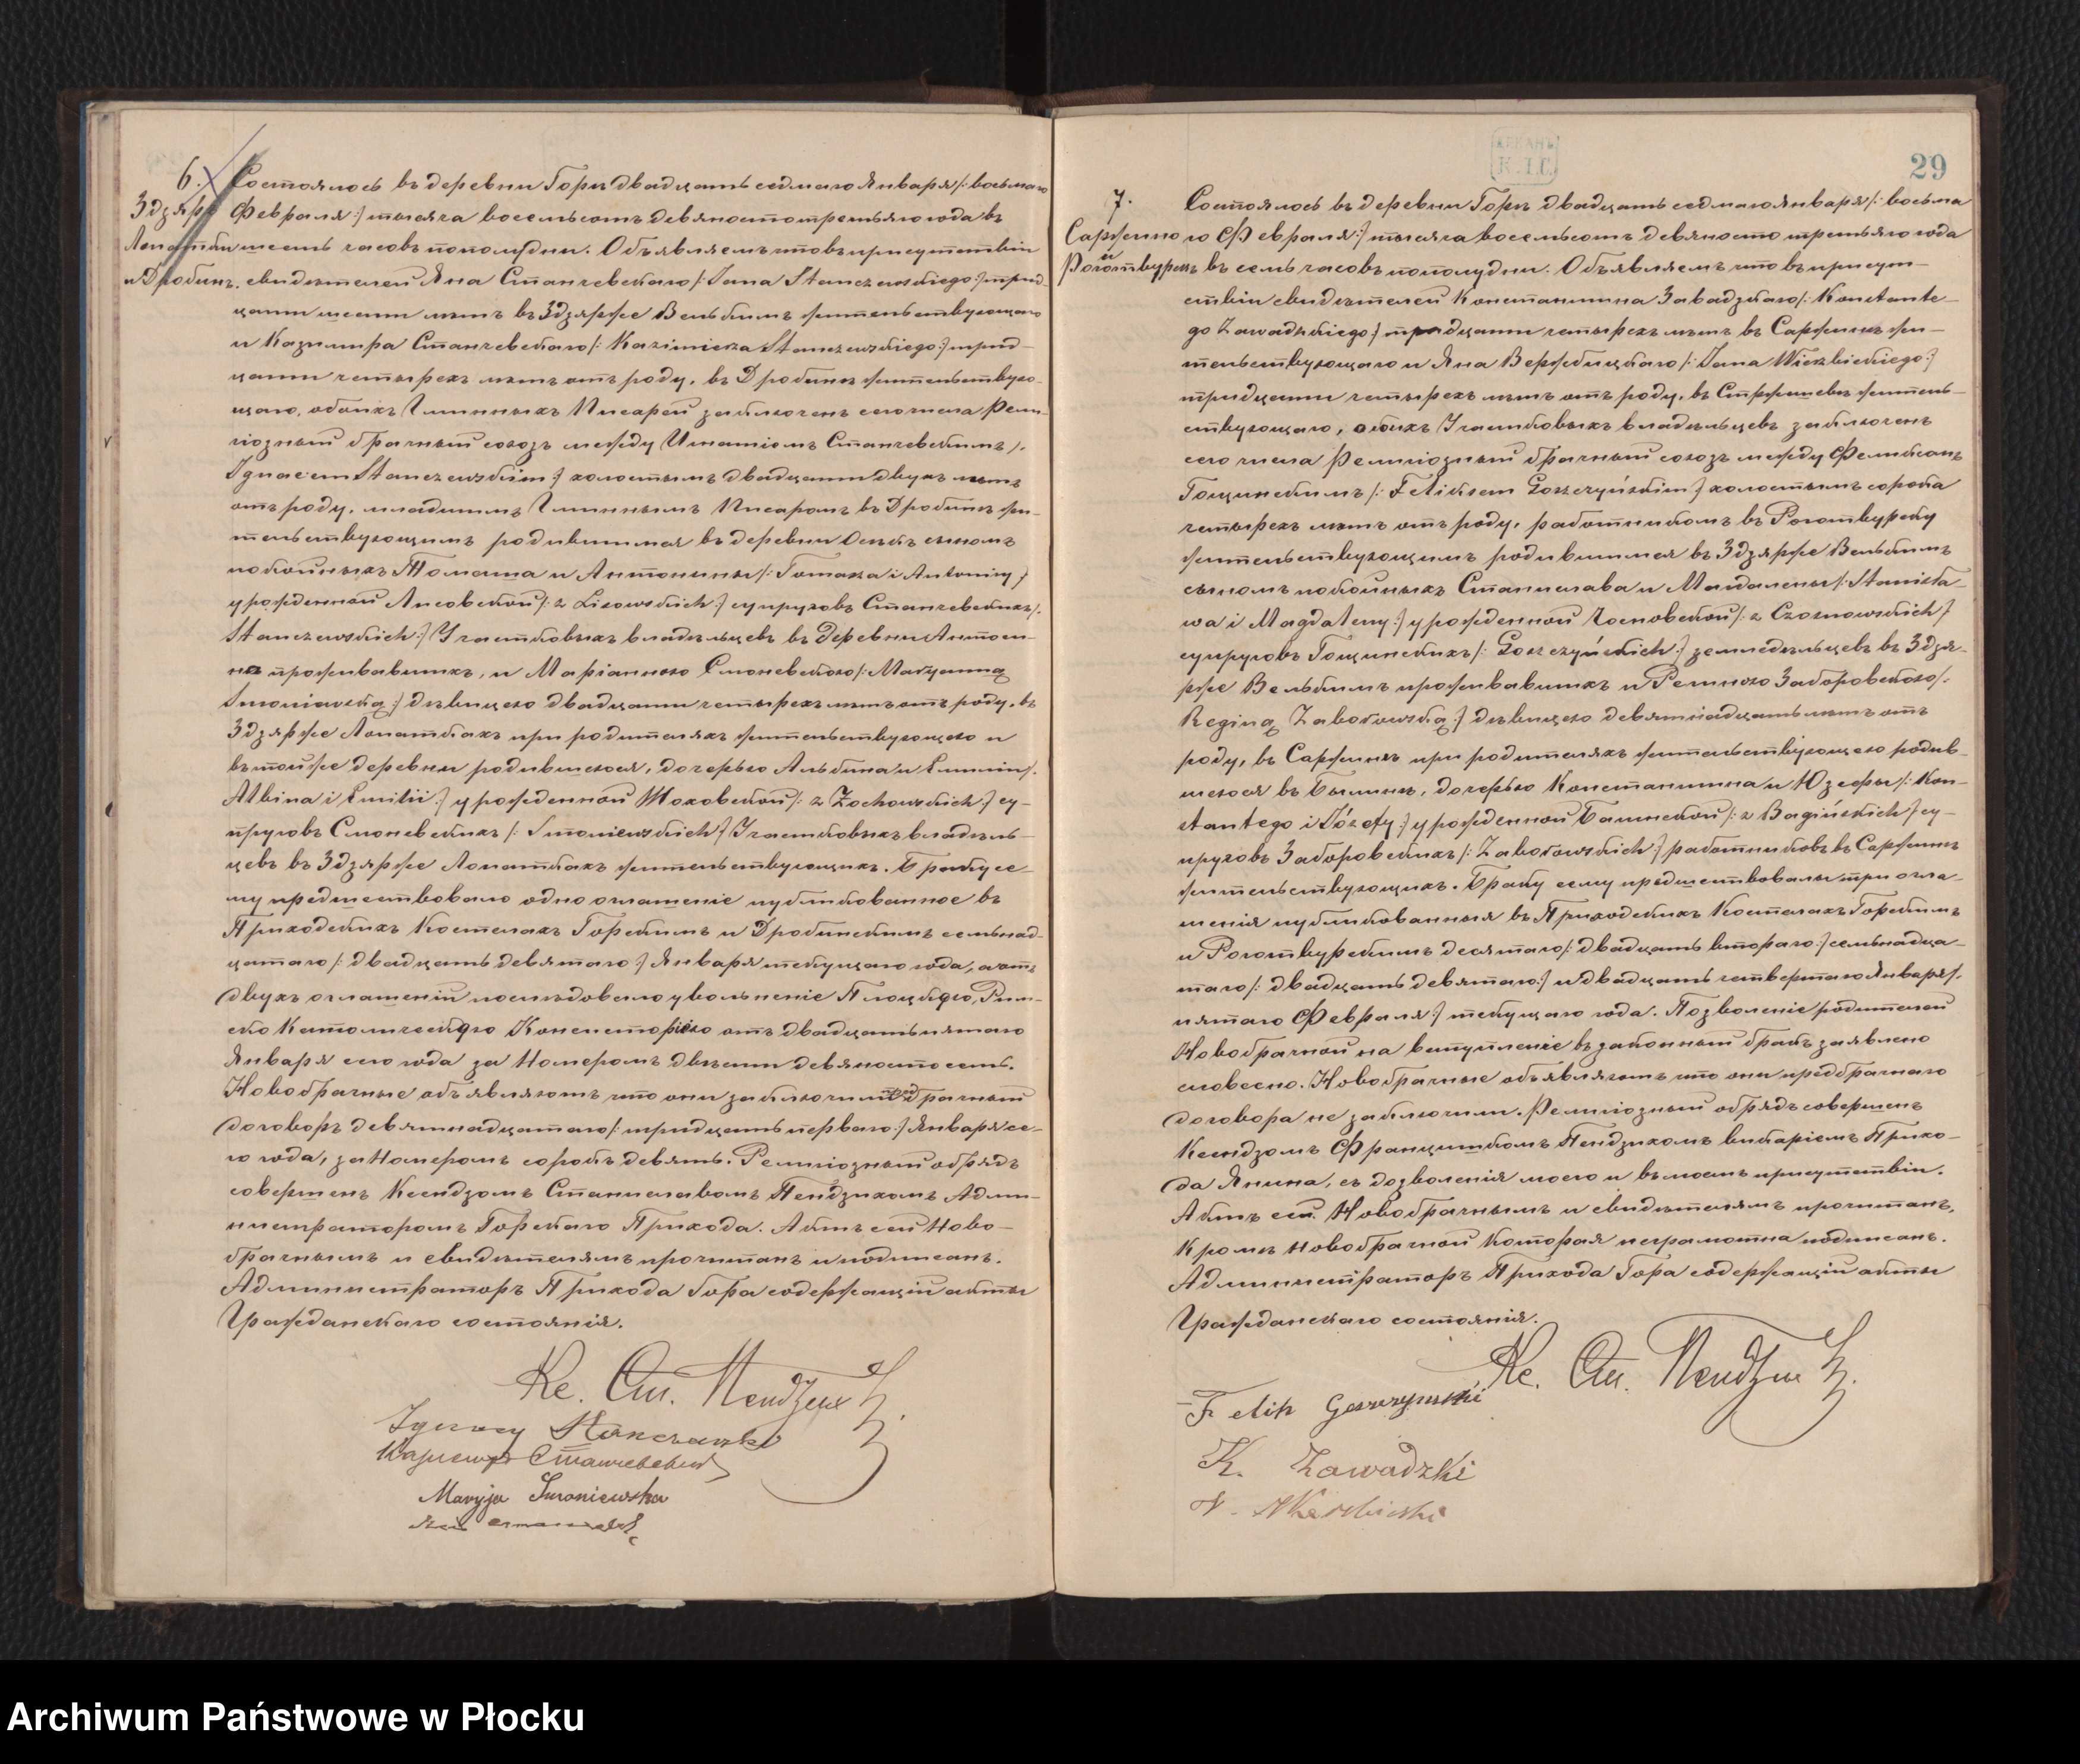 6. Состоялось въ деревни Горѣ двадцать седмаго Января /: восьмаго
Здзярже Февраля :/ тысяча восемьсотъ девяносто третьяго года въ
Лопатки шесть часовъ пополудни. Объявляемъ что въ присутствіи
и Дробинъ. свидѣтелей Яна Станчевскаго /: Jana Stanczewskiego :/ трид-
цати шести лѣтъ въ Здзярже Велькимъ жительствующаго
и Казимира Станчевскаго /: Kazimierza Stanczewskiego :/ трид-
цати четырехъ лѣтъ отъ роду, въ Дробинѣ жительствую-
щаго, обоихъ Гминныхъ Писарей заключенъ сего числа Рели-
гіозный брачный союзъ между Игнатіемъ Станчевскимъ /:
Ignacem Stanczewskim :/ холостымъ двадцати двухъ лѣтъ
отъ роду, младшимъ Гминнымъ Писаромъ въ Дробинѣ жи-
тельствующимъ родившимся въ деревни сыномъ
покойныхъ Томаша и Антонины /: Tomasza i Antoniny :/
урожденной Лисовской /: z Lisowskich :/ супруговъ Станчевскихъ /:
Stanczewskich :/ Участковыхъ владѣльцевъ въ деревни
проживавшихъ, и Маріанною Смоневскою /: Maryanną
Smoniewską :/ дѣвицею двадцати четырехъ лѣтъ отъ роду, въ
Здзярже Лопаткахъ при родителяхъ жительствующею и
въ тойже деревни родившеюся, дочерью Альбина и Емиліи /:
Albina i Emilii :/ урожденной Жоховской /: z Żochowskich :/ су-
пруговъ Смоневскихъ /: Smoniewskich :/ Участковыхъ владѣль-
цевъ въ Здзярже Лопаткахъ жительствующихъ. Браку се-
му предшествовало одно оглашеніе публикованное въ
Приходскихъ Костелахъ Горскимъ и Дробинскимъ семьнад-
цатаго /: двадцать девятаго :/ Января текущаго года, а отъ
двухъ оглашеній послѣдовало увольненіе Плоцкаго, Рим-
ско Католическаго Консисторіею отъ двадцать пятаго
Января сего года за Номеромъ двѣсти девяносто семь.
Новобрачные объявляютъ что они заключили предбрачный
договоръ девятнадцатаго /: тридцать перваго :/ Января се-
го года, за Номеромъ сорокъ девять. Религіозный обрядъ
совершенъ Ксендзомъ Станиславомъ Пендзихомъ Адми-
нистраторомъ Горскаго Прихода. Актъ сей Ново-
брачнымъ и свидѣтелямъ прочитанъ и подписанъ.
Администраторъ Прихода Гора содержащій акты
Гражданскаго состоянія.
Кс. Ст. Пендзих
Ignacy Stanczewski
Казимиръ Станчевскій
Maryja Smoniewska
29
7. Состоялось въ деревни Горѣ двадцать седмаго Января /: восьма
Саржино го Февраля :/ тысяча восемьсотъ девяносто третьяго года
и
Роготвурскъ въ семь часовъ пополудни. Объявляемъ что въ присут-
ствіи свидѣтелей Константина Завадзкаго /: Konstante-
go Zawadzkiego :/ тридцати четырехъ лѣтъ въ Саржинѣ жи-
тельствующаго и Яна Вержбицкаго /: Jana Wierzbickiego :/
тридцати четырехъ лѣтъ отъ роду, въ жетель-
ствующаго, обоихъ Участковыхъ владѣльцевъ заключенъ
сего числа Религіозный брачный союзъ между Феликсомъ
Гощинскимъ /: Feliksem Goszczyńskim :/ холостымъ сорока
четырехъ лѣтъ отъ роду, работникомъ въ Роготвурску
жительствующимъ родившимся въ Здзярже Велькимъ
сыномъ покойныхъ Станислава и Магдалены /: Stanisła-
wa i Magdaleny :/ урожденной Чосновской /: z Czosnowskich :/
супруговъ Гощинскихъ /: Goszczyńskich :/ земледѣльцевъ въ Здзя-
рже Велькимъ проживавшихъ и Региною Заборовскою /:
Reginą Zaborowską :/ дѣвицею девятнадцать лѣтъ отъ
роду, въ Саржинѣ при родителяхъ жительствующею родив-
шеюся въ, дочерью Константина и Юзефы /: Kon-
stantego i Józefy :/ урожденной Багинской /: z Bagińskich :/ су-
пруговъ Заборовскихъ /: Zaborowskich :/ работниковъ въ Саржинѣ
жительствующихъ. Браку сему предшествовали три огла-
шенія публикованныя въ Приходскихъ Костелахъ Горскимъ
и Роготвурскимъ десятаго /: двадцать втораго :/ семьнадца-
таго /: двадцать девятаго :/ и двадцать четвертаго Января /:
пятаго Февраля :/ текущаго года. Позволеніе родителей
Новобрачной на вступленіе въ законный бракъ заявлено
словесно. Новобрачные объявляютъ что они предбрачнаго
договора не заключили. Религіозный обрядъ совершенъ
Ксендзомъ Францишкомъ Пендзихомъ викаріемъ Прихо-
да, съ дозволенія моего и въ моемъ присутствіи.
Актъ сей Новобрачнымъ и свидѣтелямъ прочитанъ,
Кромѣ Новобрачной которая неграмотна подписанъ.
Администраторъ Прихода Гора содержащій акты
Гражданскаго состоянія.
Кс. Ст. Пендзих
Felix Goszczynski
K. Zawadzki
J. Wierzbicki
Archiwum Państwowe w Płocku